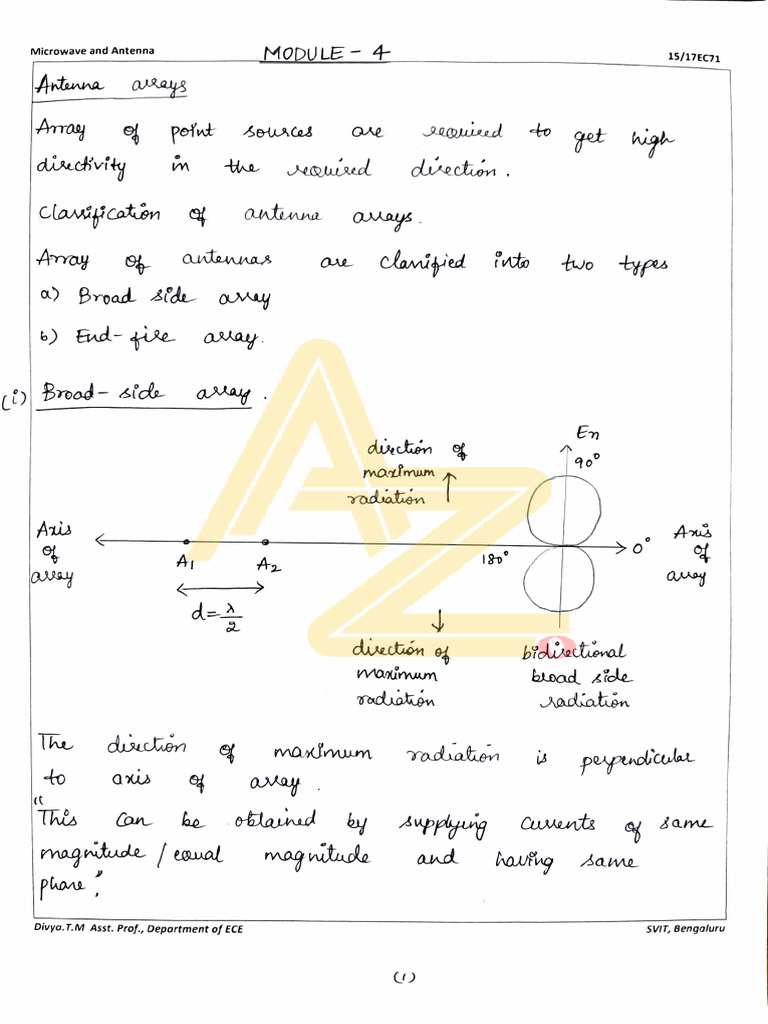 Microwave and Antenna
MODULE - 4
15/17EC71
Antenna arrays
Array of point sources are required to get high
directivity in the required direction.
Classification of antenna arrays.
Array of antennas are classified into two types
a) Broad side array
b) End-fire array.
(i) Broad-side array.
direction of
maximum
radiation
En
90°
Axis
of
array
A1
A2
180°
0°
Axis
of
array
d=λ/2
direction of
maximum
radiation
bidirectional
broad side
radiation
The direction of maximum radiation is perpendicular
to axis of array.
"This can be obtained by supplying currents of same
magnitude/equal magnitude and having same
phase",
Divya.T.M Asst. Prof., Department of ECE
SVIT, Bengaluru
(1)
AZ